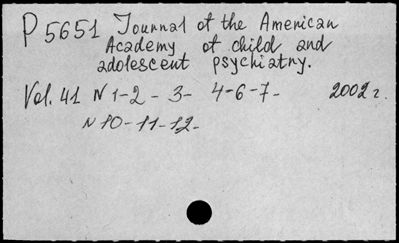 P 5651 Journal of the American
Academy of child and
adolescent psychiatry.
Vol. 41 N 1-2 - 3- 4-6-7- 2002 г.
N 10-11-12-